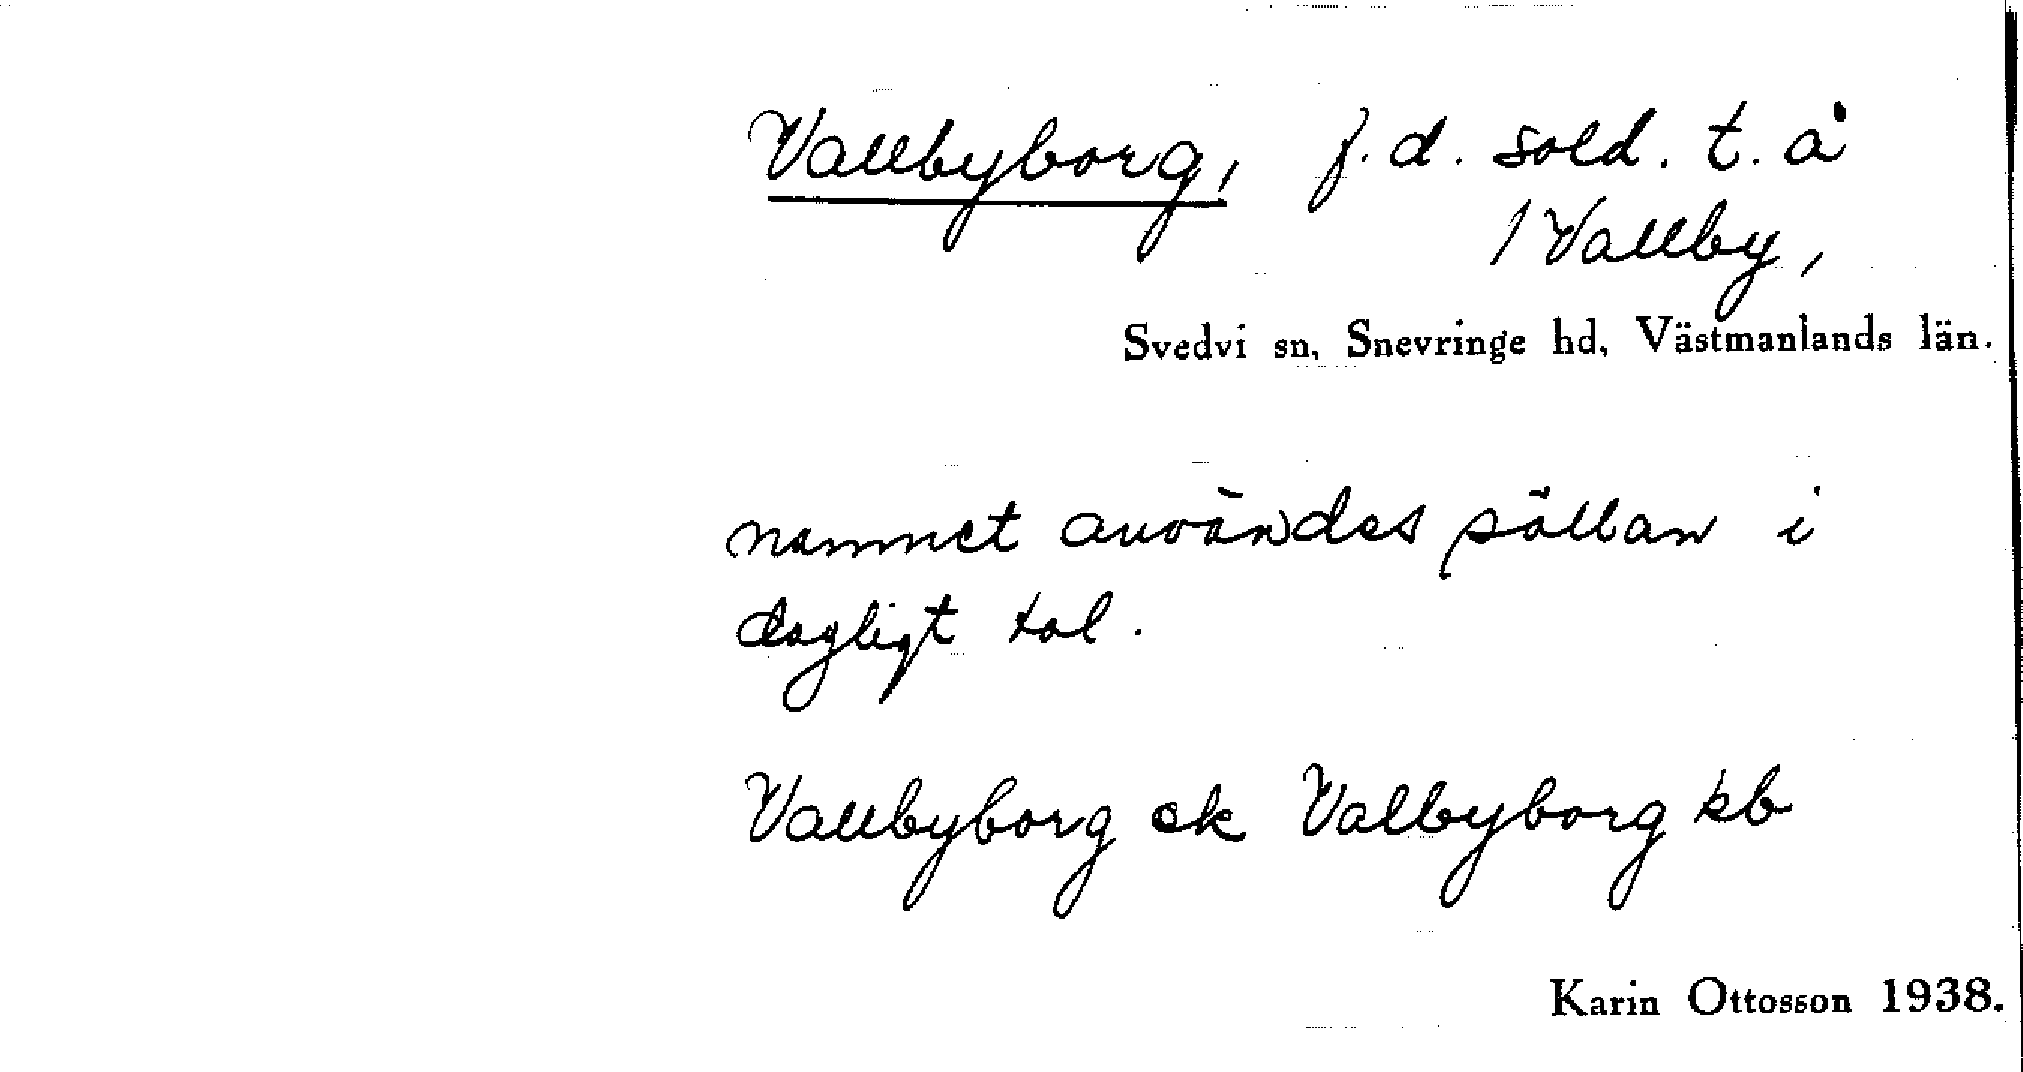 Vallbyborg, f.d. sold. t. å
/ Vallby,
Svedvi sn, Snevringe hd, Västmanlands län.
namnet användes sällan i
dagligt tal.
Vallbyborg ek Valbyborg kb
Karin Ottosson 1938.